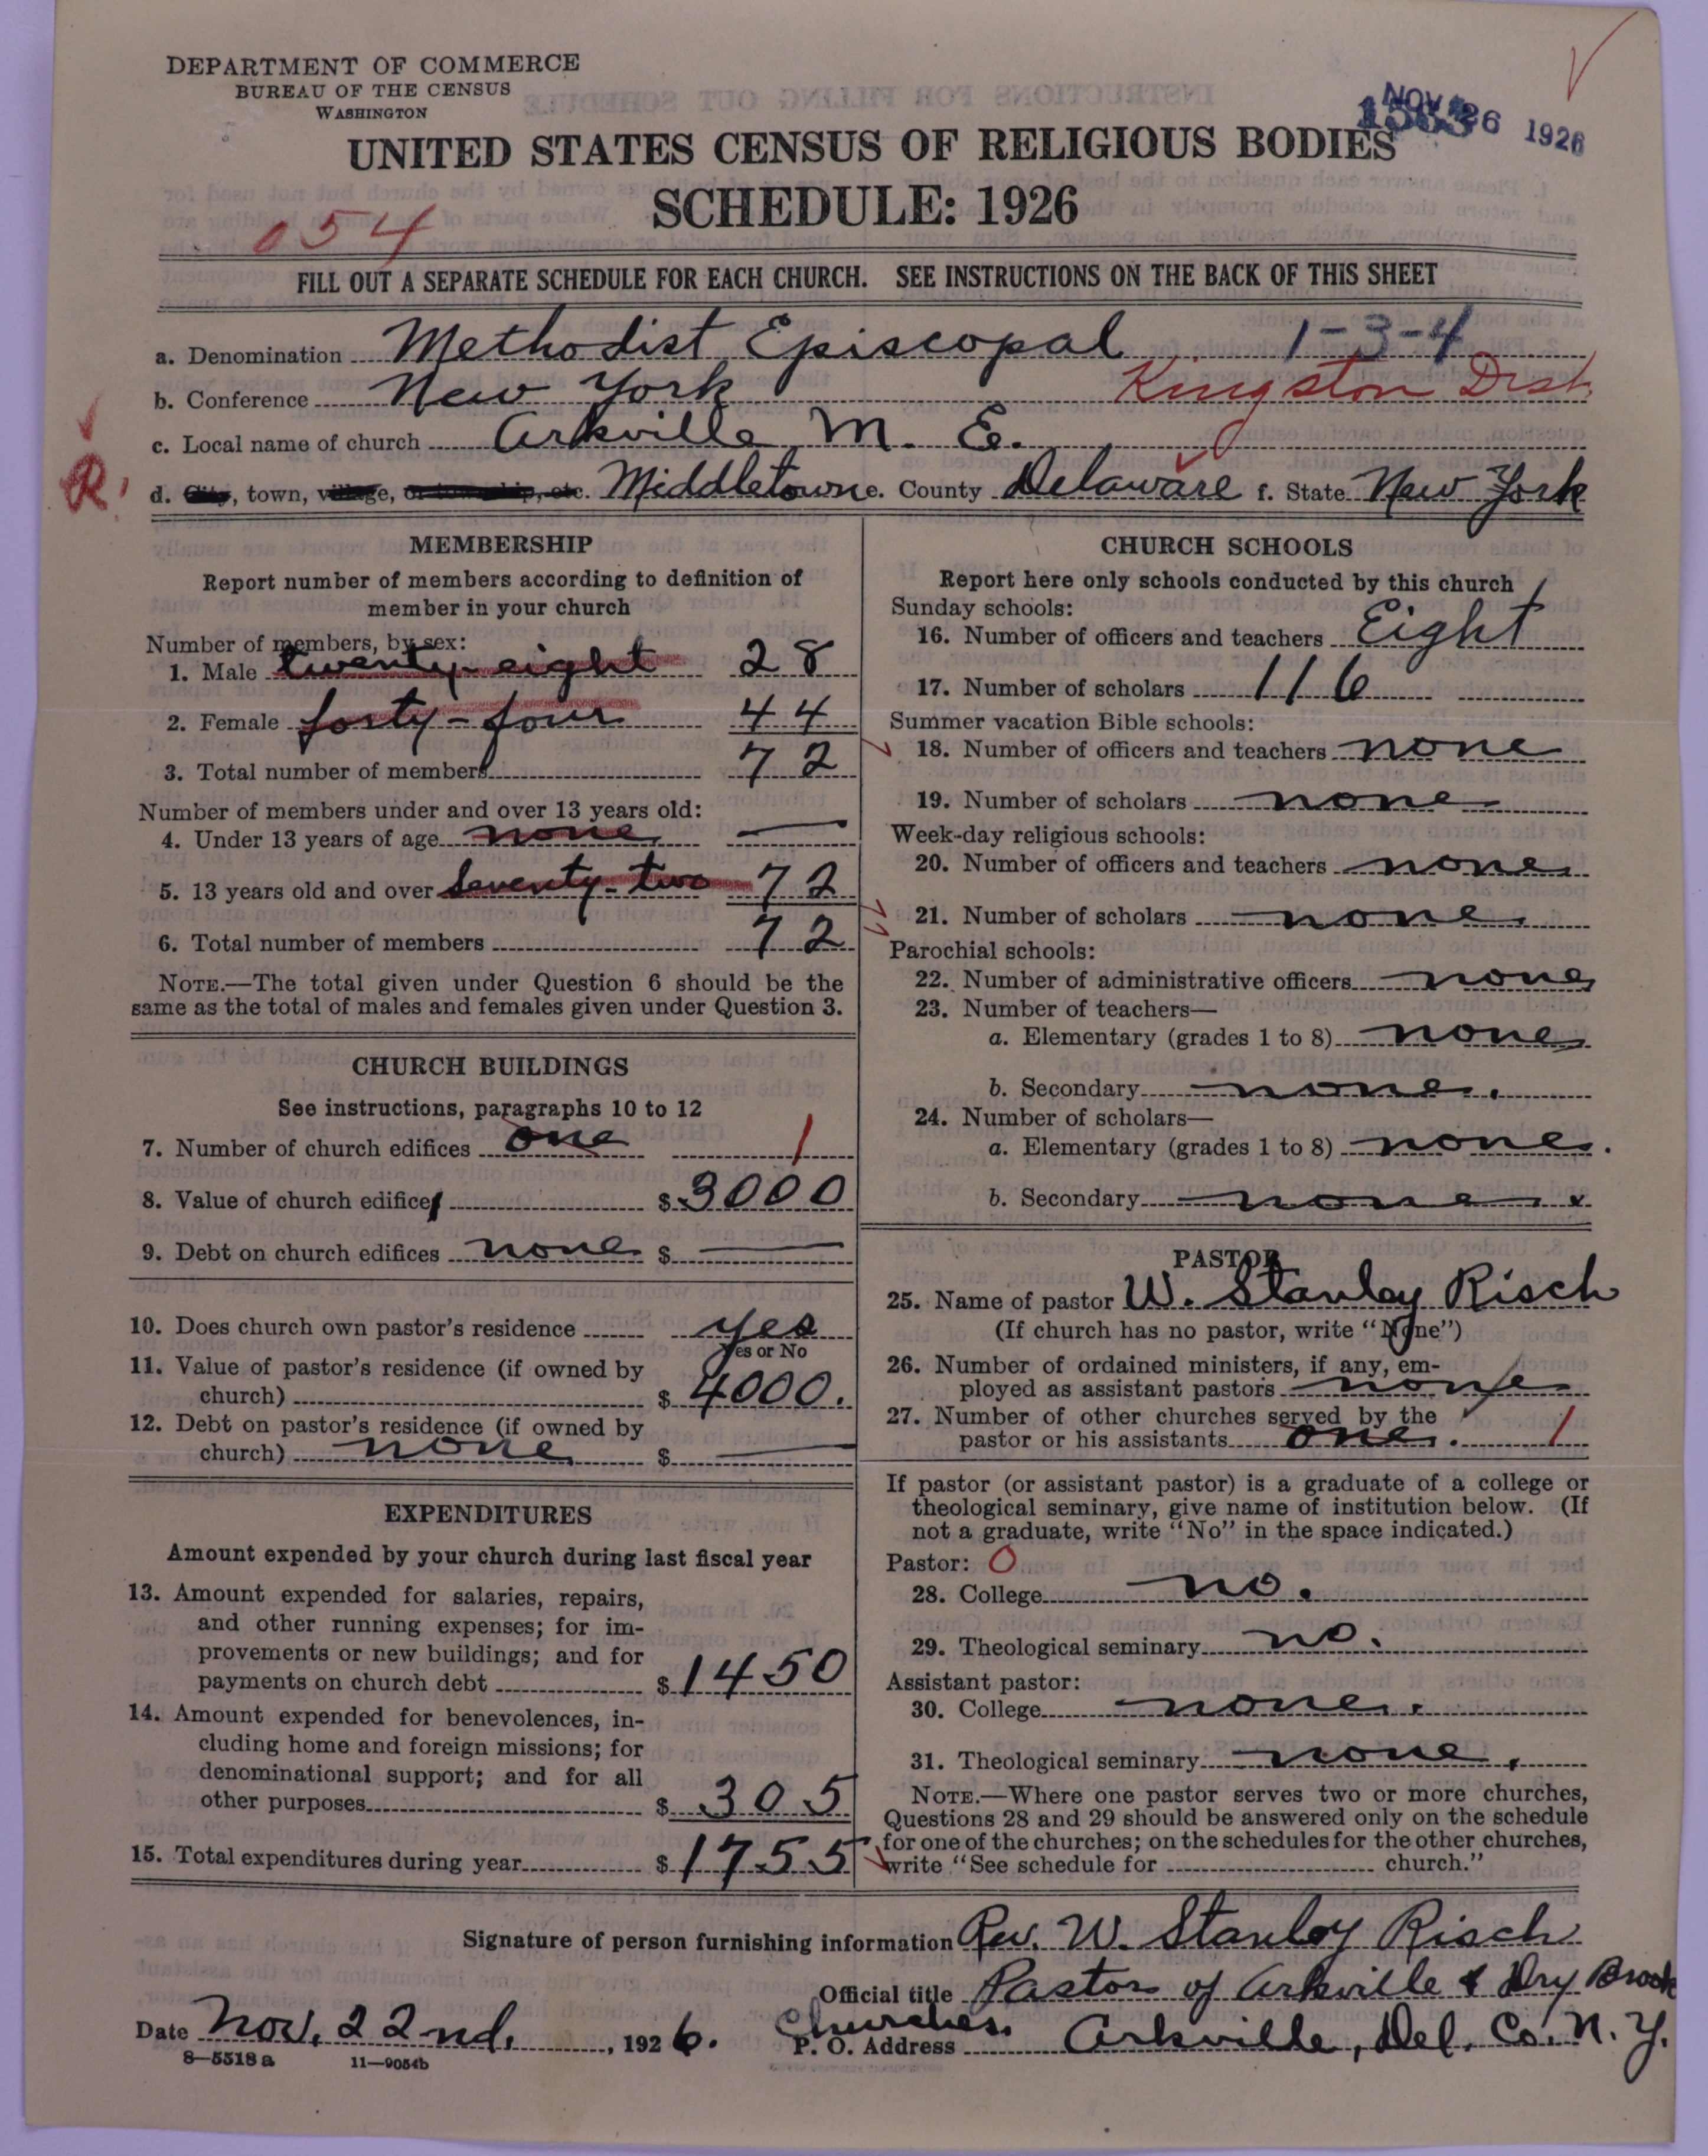 DEPARTMENT OF COMMERCE
BUREAU OF THE CENSUS
WASHINGTON
NOV 26 1926
UNITED STATES CENSUS OF RELIGIOUS BODIES
SCHEDULE: 1926
054
FILL OUT A SEPARATE SCHEDULE FOR EACH CHURCH. SEE INSTRUCTIONS ON THE BACK OF THIS SHEET
a. Denomination Methodist Episcopal 1-3-4
b. Conference New York Kingston Dist.
c. Local name of church Arkville M. E.
R.
d. City, town, village, or township, etc. Middletown e. County Delaware f. State New York
MEMBERSHIP
Report number of members according to definition of
member in your church
Number of members, by sex:
1. Male twenty-eight 28
2. Female forty-four 44
3. Total number of members 72
Number of members under and over 13 years old:
4. Under 13 years of age none —
5. 13 years old and over Seventy-two 72
6. Total number of members 72
NOTE.—The total given under Question 6 should be the
same as the total of males and females given under Question 3.
CHURCH BUILDINGS
See instructions, paragraphs 10 to 12
7. Number of church edifices one 1
8. Value of church edifices $ 3000
9. Debt on church edifices none $ —
10. Does church own pastor's residence yes
Yes or No
11. Value of pastor's residence (if owned by
church) $ 4000.
12. Debt on pastor's residence (if owned by
church) none $ —
EXPENDITURES
Amount expended by your church during last fiscal year
13. Amount expended for salaries, repairs,
and other running expenses; for im-
provements or new buildings; and for
payments on church debt $ 1450
14. Amount expended for benevolences, in-
cluding home and foreign missions; for
denominational support; and for all
other purposes $ 305
15. Total expenditures during year $ 1755
CHURCH SCHOOLS
Report here only schools conducted by this church
Sunday schools:
16. Number of officers and teachers Eight
17. Number of scholars 116
Summer vacation Bible schools:
18. Number of officers and teachers none
19. Number of scholars none
Week-day religious schools:
20. Number of officers and teachers none
21. Number of scholars none.
Parochial schools:
22. Number of administrative officers none
23. Number of teachers—
a. Elementary (grades 1 to 8) none
b. Secondary none.
24. Number of scholars—
a. Elementary (grades 1 to 8) none.
b. Secondary none.
PASTOR
25. Name of pastor W. Stanley Risch
(If church has no pastor, write "None")
26. Number of ordained ministers, if any, em-
ployed as assistant pastors none
27. Number of other churches served by the
pastor or his assistants one. 1
If pastor (or assistant pastor) is a graduate of a college or
theological seminary, give name of institution below. (If
not a graduate, write "No" in the space indicated.)
Pastor: O
28. College no.
29. Theological seminary no.
Assistant pastor:
30. College none.
31. Theological seminary none.
NOTE.—Where one pastor serves two or more churches,
Questions 28 and 29 should be answered only on the schedule
for one of the churches; on the schedules for the other churches,
write "See schedule for church."
Signature of person furnishing information Rev. W. Stanley Risch
Official title Pastor of Arkville & Dry Brook
Churches.
Date Nov. 22nd, 1926. P. O. Address Arkville, Del. Co. N. Y.
8—5518 a 11—9054b